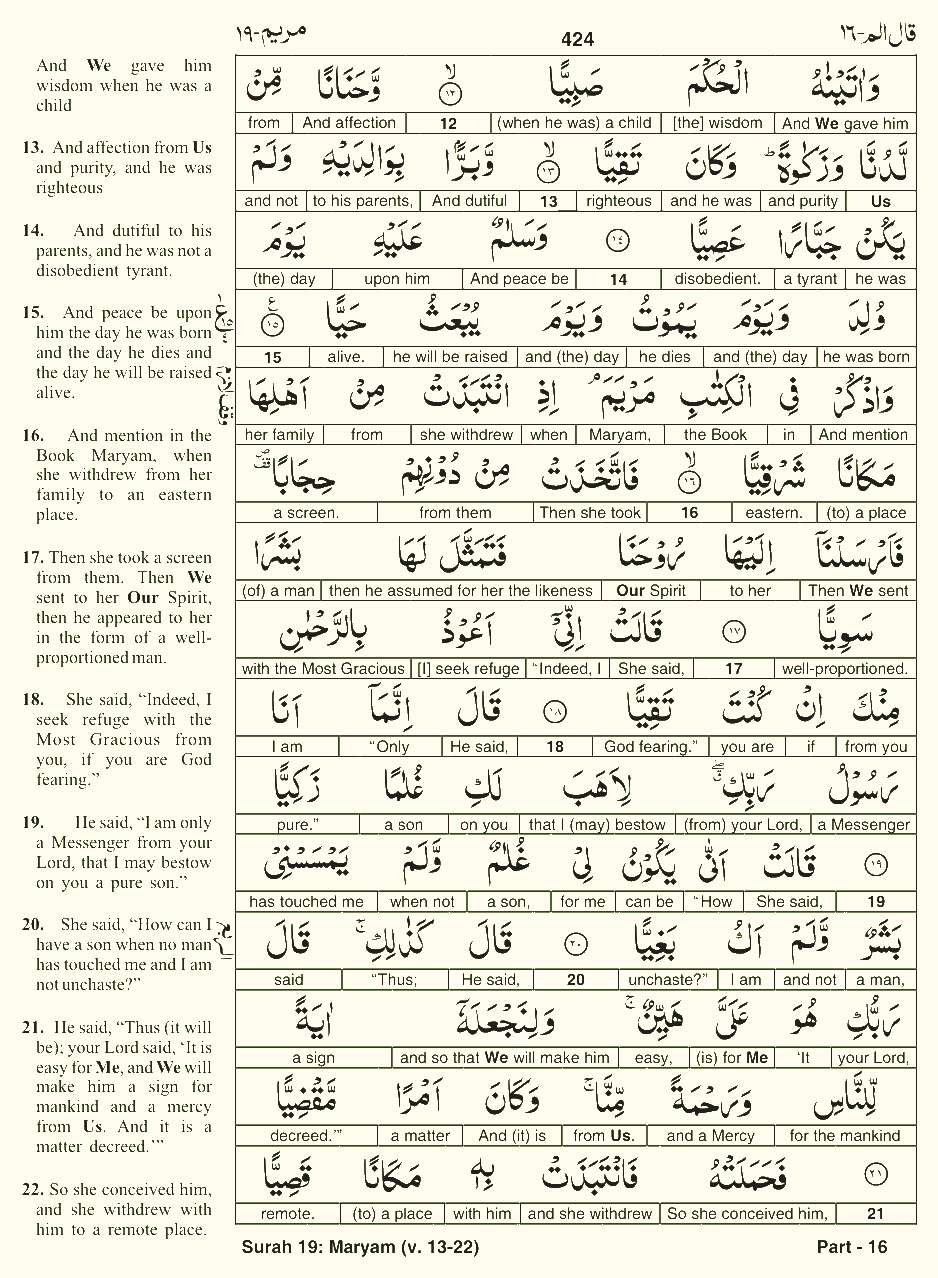 قال الم-١٦
424
مريم-١٩
And We gave him
wisdom when he was a
child
13. And affection from Us
and purity, and he was
righteous
14. And dutiful to his
parents, and he was not a
disobedient tyrant.
15. And peace be upon
him the day he was born
and the day he dies and
the day he will be raised
alive.
16. And mention in the
Book Maryam, when
she withdrew from her
family to an eastern
place.
17. Then she took a screen
from them. Then We
sent to her Our Spirit,
then he appeared to her
in the form of a well-
proportioned man.
18. She said, “Indeed, I
seek refuge with the
Most Gracious from
you, if you are God
fearing.”
19. He said, “I am only
a Messenger from your
Lord, that I may bestow
on you a pure son.”
20. She said, “How can I
have a son when no man
has touched me and I am
not unchaste?”
21. He said, “Thus (it will
be); your Lord said, ‘It is
easy for Me, and We will
make him a sign for
mankind and a mercy
from Us. And it is a
matter decreed.’”
22. So she conceived him,
and she withdrew with
him to a remote place.
وَاٰتَيْنٰهُ الْحُكْمَ صَبِيًّا ۙ﴿١٢﴾ وَّحَنَانًا مِّنْ
And We gave him [the] wisdom (when he was) a child 12 And affection from
لَّدُنَّا وَزَكٰوةً ؕ وَكَانَ تَقِيًّا ۙ﴿١٣﴾ وَّبَرًّۢا بِوَالِدَيْهِ وَلَمْ
Us and purity and he was righteous 13 And dutiful to his parents, and not
يَكُنْ جَبَّارًا عَصِيًّا ﴿١٤﴾ وَسَلٰمٌ عَلَيْهِ يَوْمَ
he was a tyrant disobedient. 14 And peace be upon him (the) day
وُلِدَ وَيَوْمَ يَمُوْتُ وَيَوْمَ يُبْعَثُ حَيًّا ﴿١٥﴾ ع
he was born and (the) day he dies and (the) day he will be raised alive. 15
وَاذْكُرْ فِي الْكِتٰبِ مَرْيَمَ ۘ اِذِ انْتَبَذَتْ مِنْ اَهْلِهَا
And mention in the Book Maryam, when she withdrew from her family
مَكَانًا شَرْقِيًّا ۙ﴿١٦﴾ فَاتَّخَذَتْ مِنْ دُوْنِهِمْ حِجَابًا
(to) a place eastern. 16 Then she took from them a screen.
فَاَرْسَلْنَاۤ اِلَيْهَا رُوْحَنَا فَتَمَثَّلَ لَهَا بَشَرًا
Then We sent to her Our Spirit then he assumed for her the likeness (of) a man
سَوِيًّا ﴿١٧﴾ قَالَتْ اِنِّيْۤ اَعُوْذُ بِالرَّحْمٰنِ
well-proportioned. 17 She said, “Indeed, I [I] seek refuge with the Most Gracious
مِنْكَ اِنْ كُنْتَ تَقِيًّا ﴿١٨﴾ قَالَ اِنَّمَاۤ اَنَا
from you if you are God fearing.” 18 He said, “Only I am
رَسُوْلُ رَبِّكِ ۖ لِاَهَبَ لَكِ غُلٰمًا زَكِيًّا
a Messenger (from) your Lord, that I (may) bestow on you a son pure.”
﴿١٩﴾ قَالَتْ اَنّٰى يَكُوْنُ لِيْ غُلٰمٌ وَّلَمْ يَمْسَسْنِيْ
19 She said, “How can be for me a son, when not has touched me
بَشَرٌ وَّلَمْ اَكُ بَغِيًّا ﴿٢٠﴾ قَالَ كَذٰلِكِ ۚ قَالَ
a man, and not I am unchaste?” 20 He said, “Thus; said
رَبُّكِ هُوَ عَلَيَّ هَيِّنٌ ۚ وَلِنَجْعَلَهٗۤ اٰيَةً
your Lord, ‘It (is) for Me easy, and so that We will make him a sign
لِّلنَّاسِ وَرَحْمَةً مِّنَّا ۚ وَكَانَ اَمْرًا مَّقْضِيًّا
for the mankind and a Mercy from Us. And (it) is a matter decreed.’”
﴿٢١﴾ فَحَمَلَتْهُ فَانْتَبَذَتْ بِهٖ مَكَانًا قَصِيًّا
21 So she conceived him, and she withdrew with him (to) a place remote.
Surah 19: Maryam (v. 13-22)
Part - 16